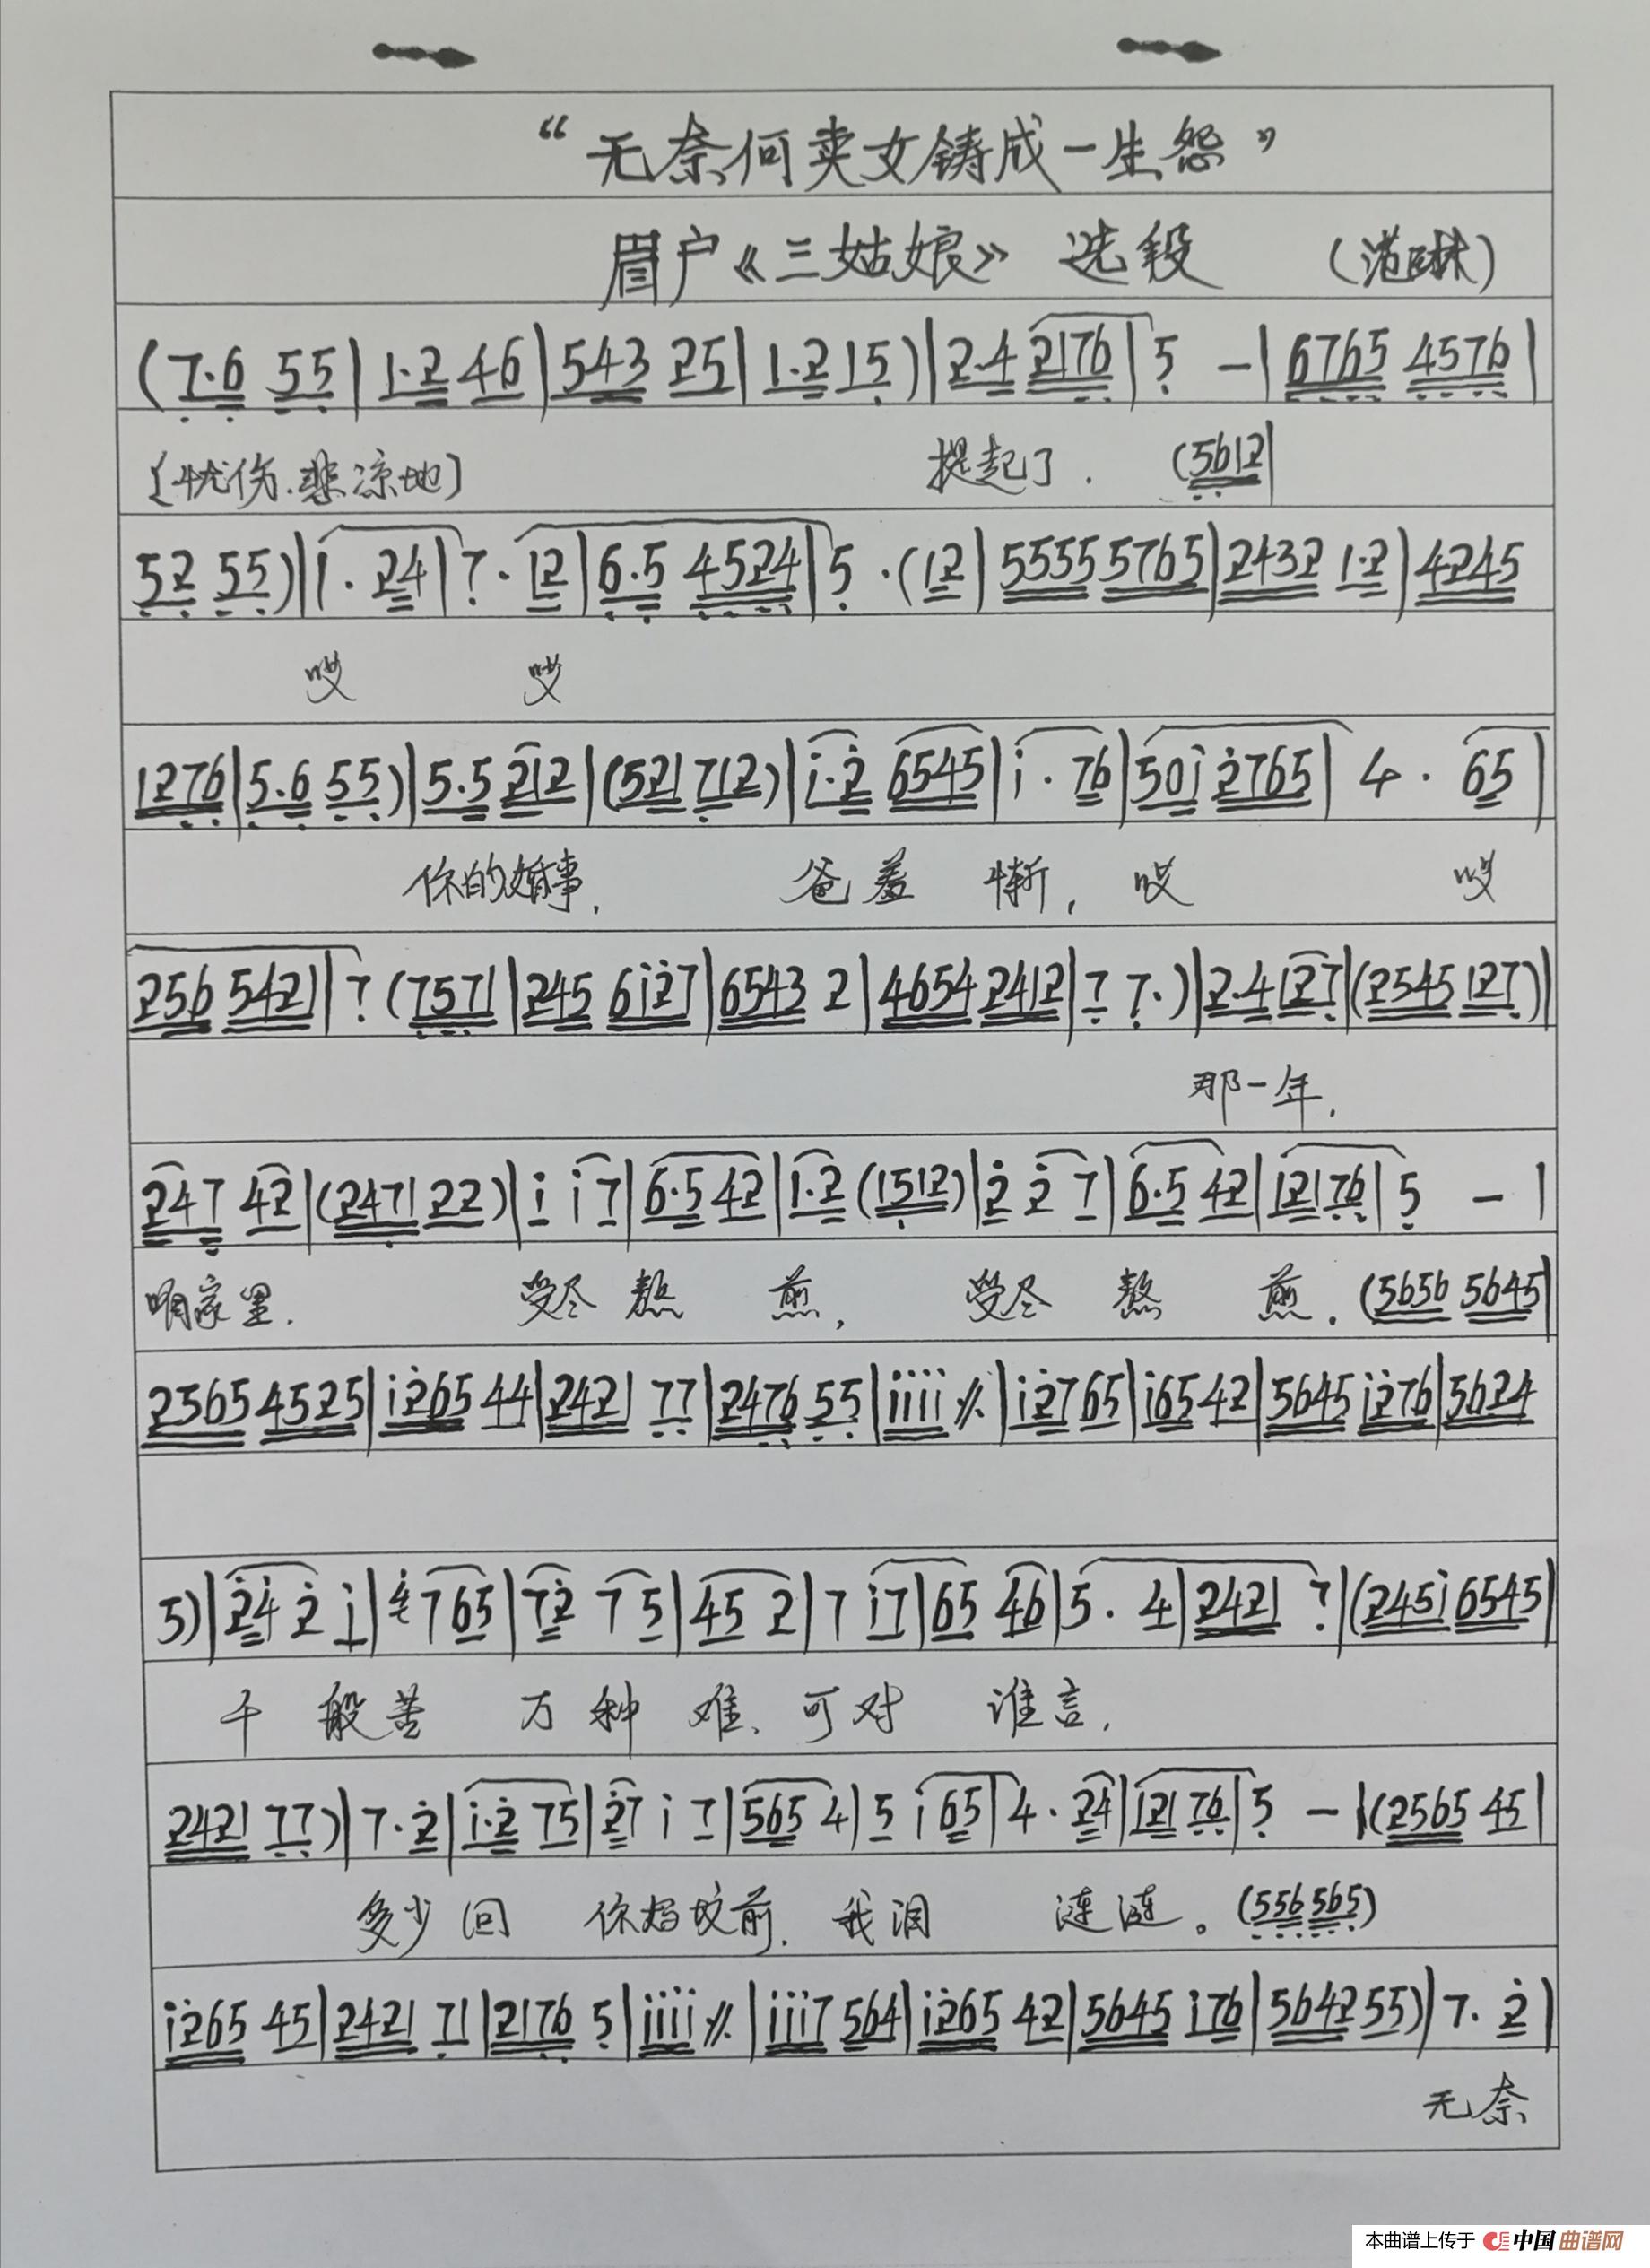 “无奈何卖女铸成一生怨”
眉户《三姑娘》 选段 (范琳)
(7·6 55|1·2 46|543 25|1·2 15)|2·4 2176|5 -|6765 4576|
〔忧伤.悲凉地〕 提起了. (5612|
52 55)|1· 24|7· 12|6·5 4524|5 ·(12|5555 5765|2432 1·2|4245
哎 哎
1276|5·6 55)|5·5 212|(521 712)|i·2̇ 6545|i· 76|50i 2̇765|4· 65|
你的婚事, 爸羞惭, 哎 哎
256 5421|7 (7571|245 6i2̇7|6543 2|4654 2412|7 7·)|2·4 127|(2545 127)|
那一年,
247 42|(2471 22)|i i7|6·5 42|1·2 (1512)|2̇ 2̇ 7|6·5 42|12176|5 -|
咱家里. 受尽熬煎, 受尽熬煎. (5656 5645|
2565 4525|i2̇65 44|2421 77|2476 55|iiii ⁒|i2̇765|i65 42|5645 i2̇76|5624
5)|2̇4̇ 2̇ i|4̇ 765|72̇ 7 5|45 2|7 i7|65 46|5· 4|2421 7|(245i 6545|
千般苦 万种难、可对谁言,
2421 77)|7·2̇|i·2̇ 75|2̇7 i 7|565 4|5 i 65|4· 24|121 76|5 -|(2565 45|
多少回 你妈坟前, 我泪涟涟。(556 565)
i2̇65 45|2421 71|2176 5|iiii ⁒|iii7 564|i2̇65 42|5645 i76|5642 55)|7· 2̇|
无奈
本曲谱上传于 中国曲谱网